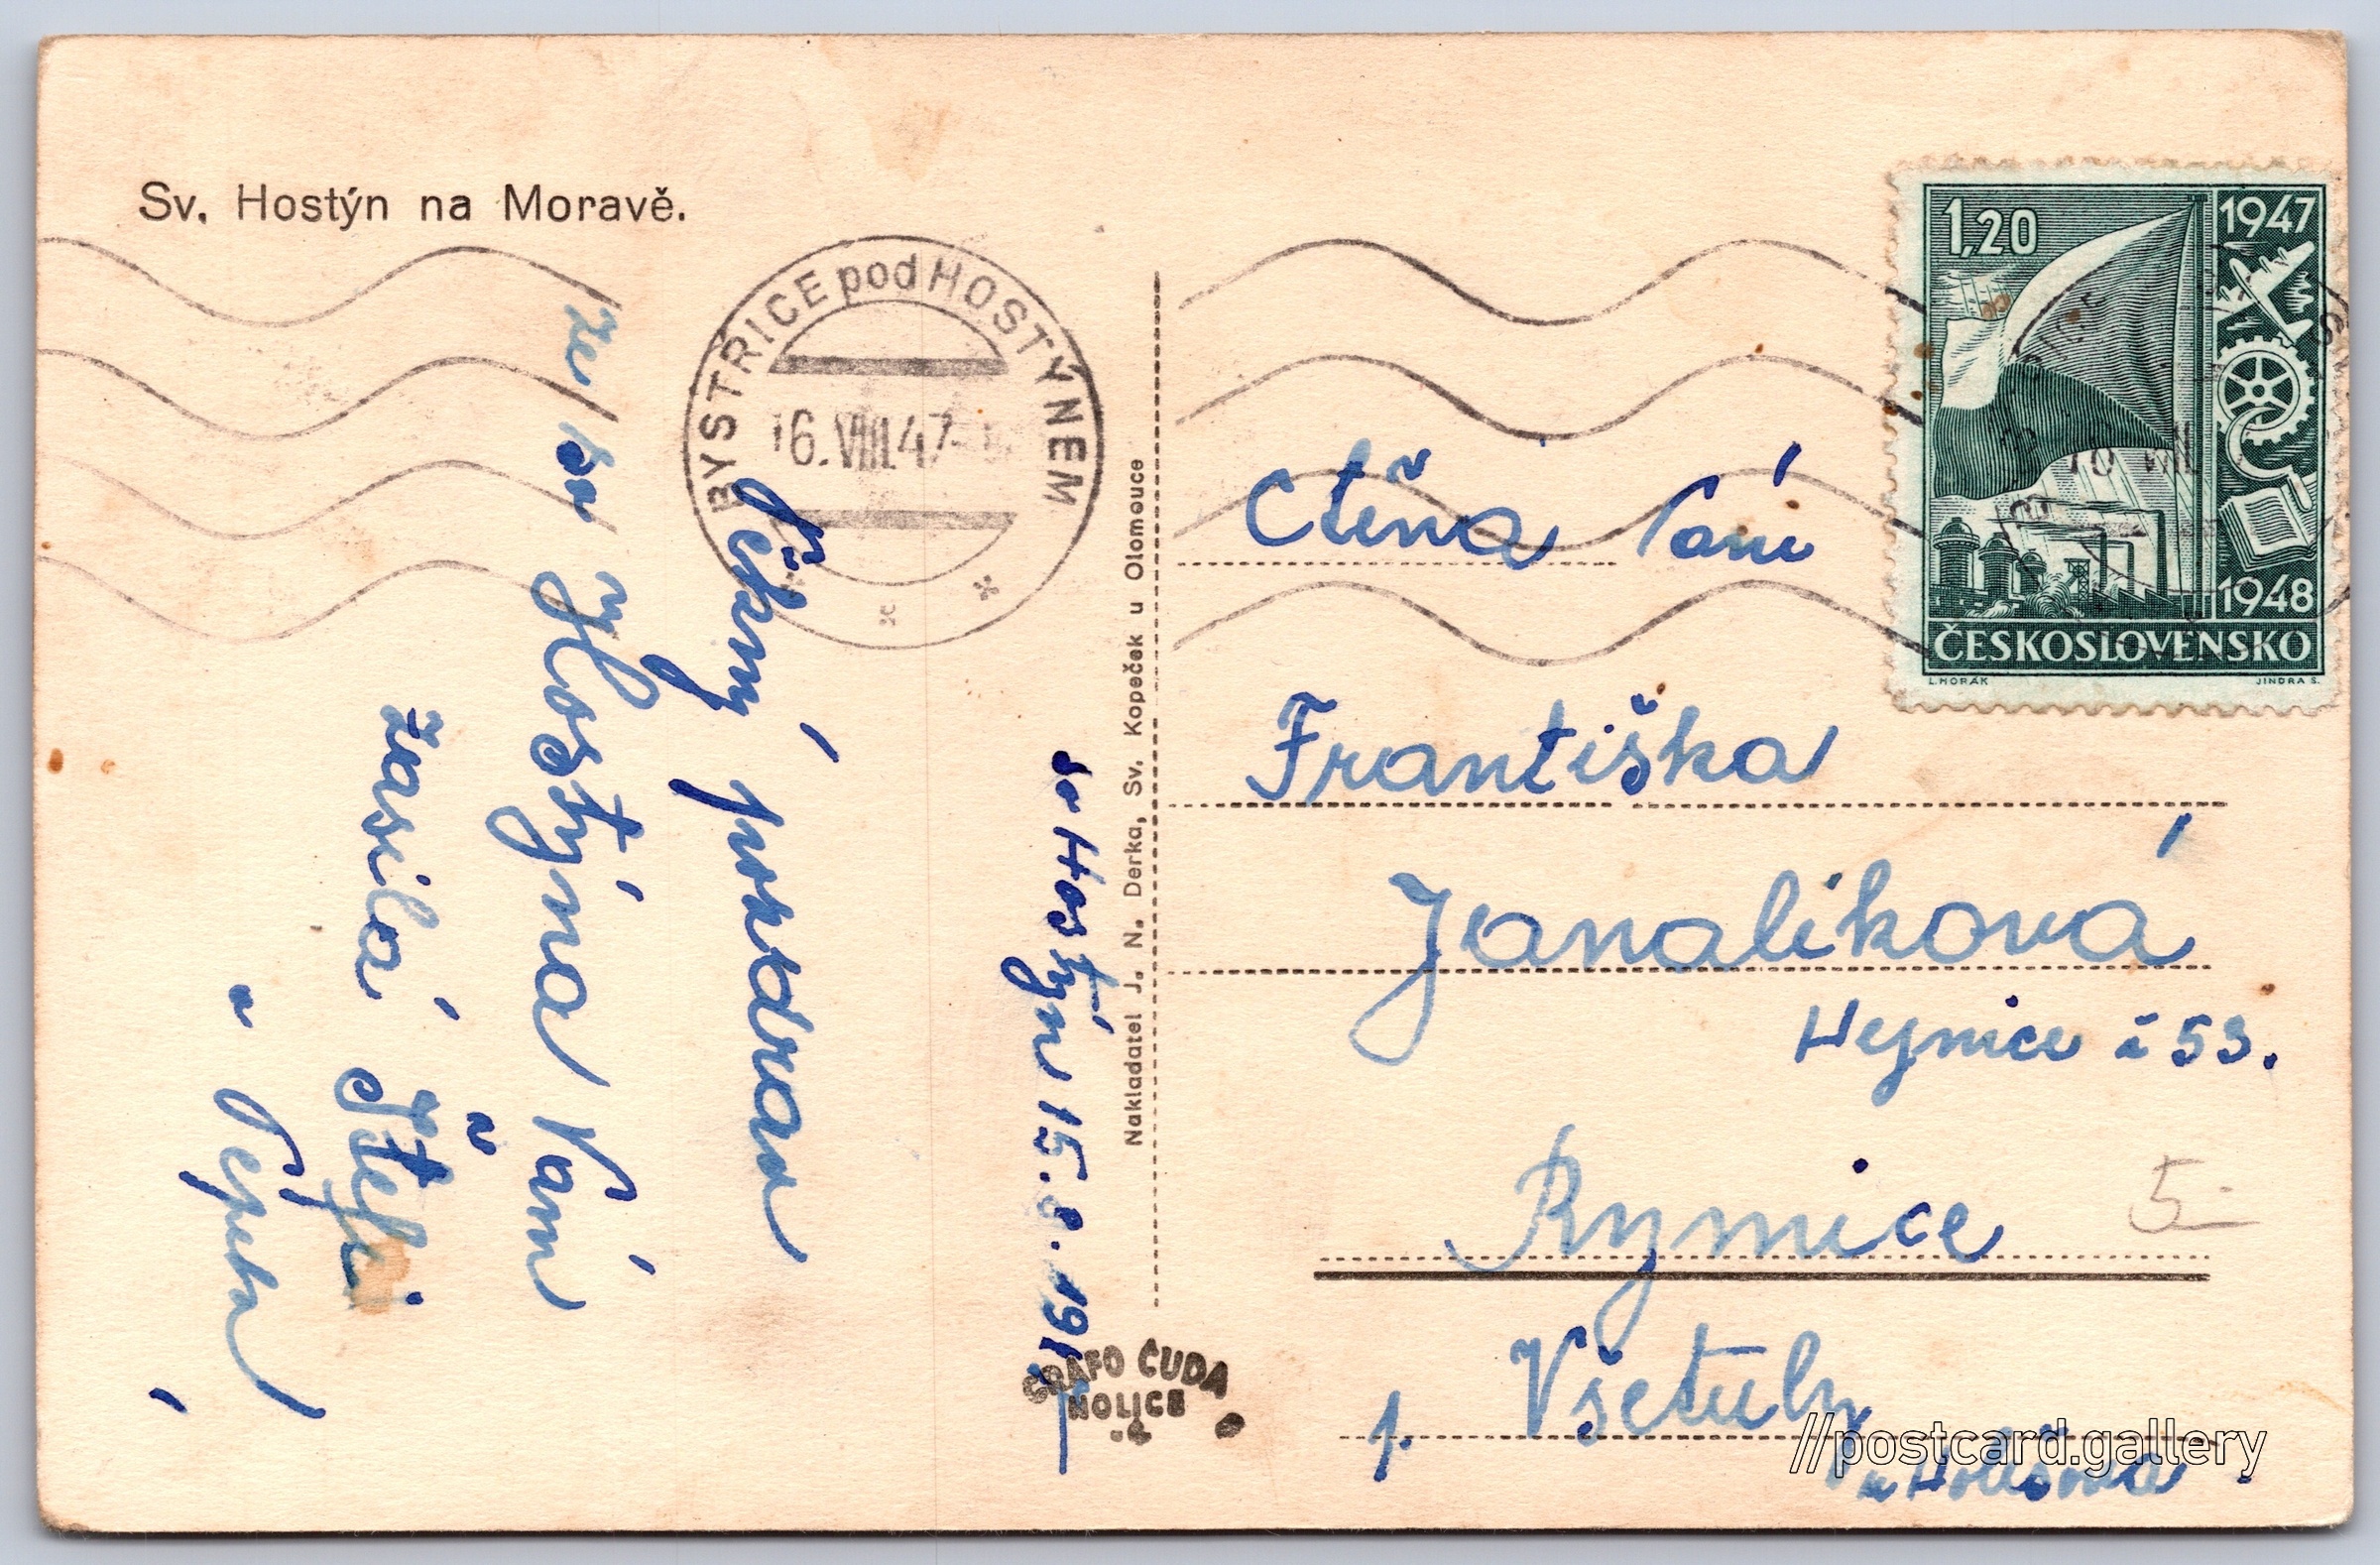 Sv. Hostýn na Moravě.
BYSTŘICE pod HOSTÝNEM
16.VIII.47
Pěkný pozdrav
ze sv Hostýna Vám
zasílá Štefi
a Pepka
sv Hostýn 15.8.1947
Nakladatel J. N. Derka, Sv. Kopeček u Olomouce
GRAFO ČUDA
HOLICE
1,20
1947
1948
ČESKOSLOVENSKO
L. HORÁK
JINDRA S.
Ctěná Paní
Františka
Janalíková
č 53.
Rymice
5.-
p. Všetuly
u Holešova
//postcard.gallery